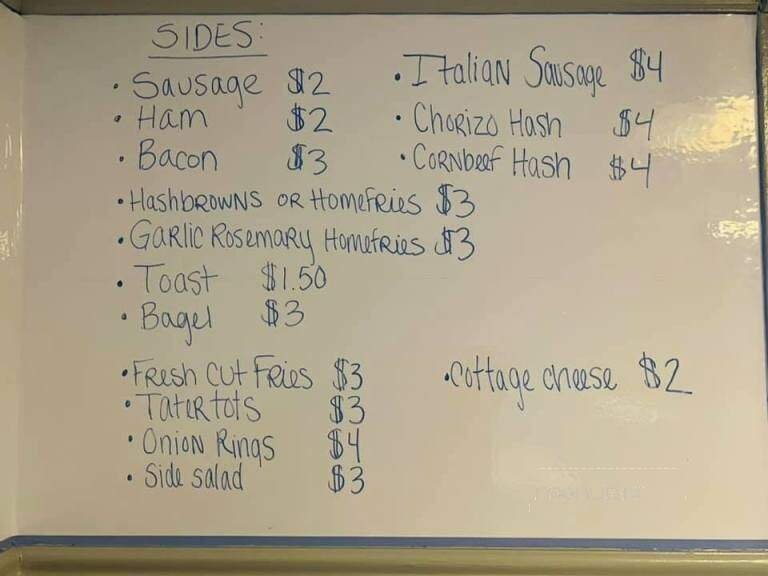 SIDES:
• Sausage $2
• Ham $2
• Bacon $3
• Italian Sausage $4
• Chorizo Hash $4
• Cornbeef Hash $4
• Hashbrowns or Homefries $3
• Garlic Rosemary Homefries $3
• Toast $1.50
• Bagel $3
• Fresh cut Fries $3
• Tater tots $3
• Onion Rings $4
• Side salad $3
• Cottage cheese $2